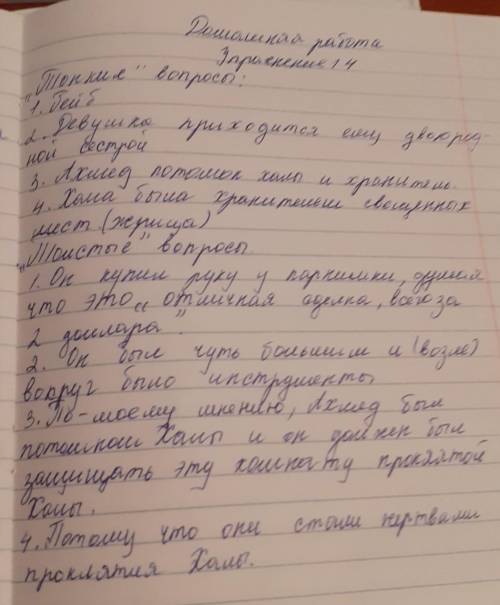 Домашняя работа
Упражнение 14
"Тонкие" вопросы:
1. Гейб
2. Девушка приходится ему двоюрод
ной сестрой
3. Ахмед потомок халы и хранитель.
4. Хама была хранителем священных
мест. (жрица)
"Толстые" вопросы.
1. Он купил руку у парнишки, думая
что это "отличная сделка, всего за
2 доллара".
2. Он был чуть большим и (возле)
вокруг было инструменты
3. По-моему мнению, Ахмед был
потомком Халы и он должен был
защищать эту комнату проклятой
Халы.
4. Потому что они стали жертвами
проклятия Халы.